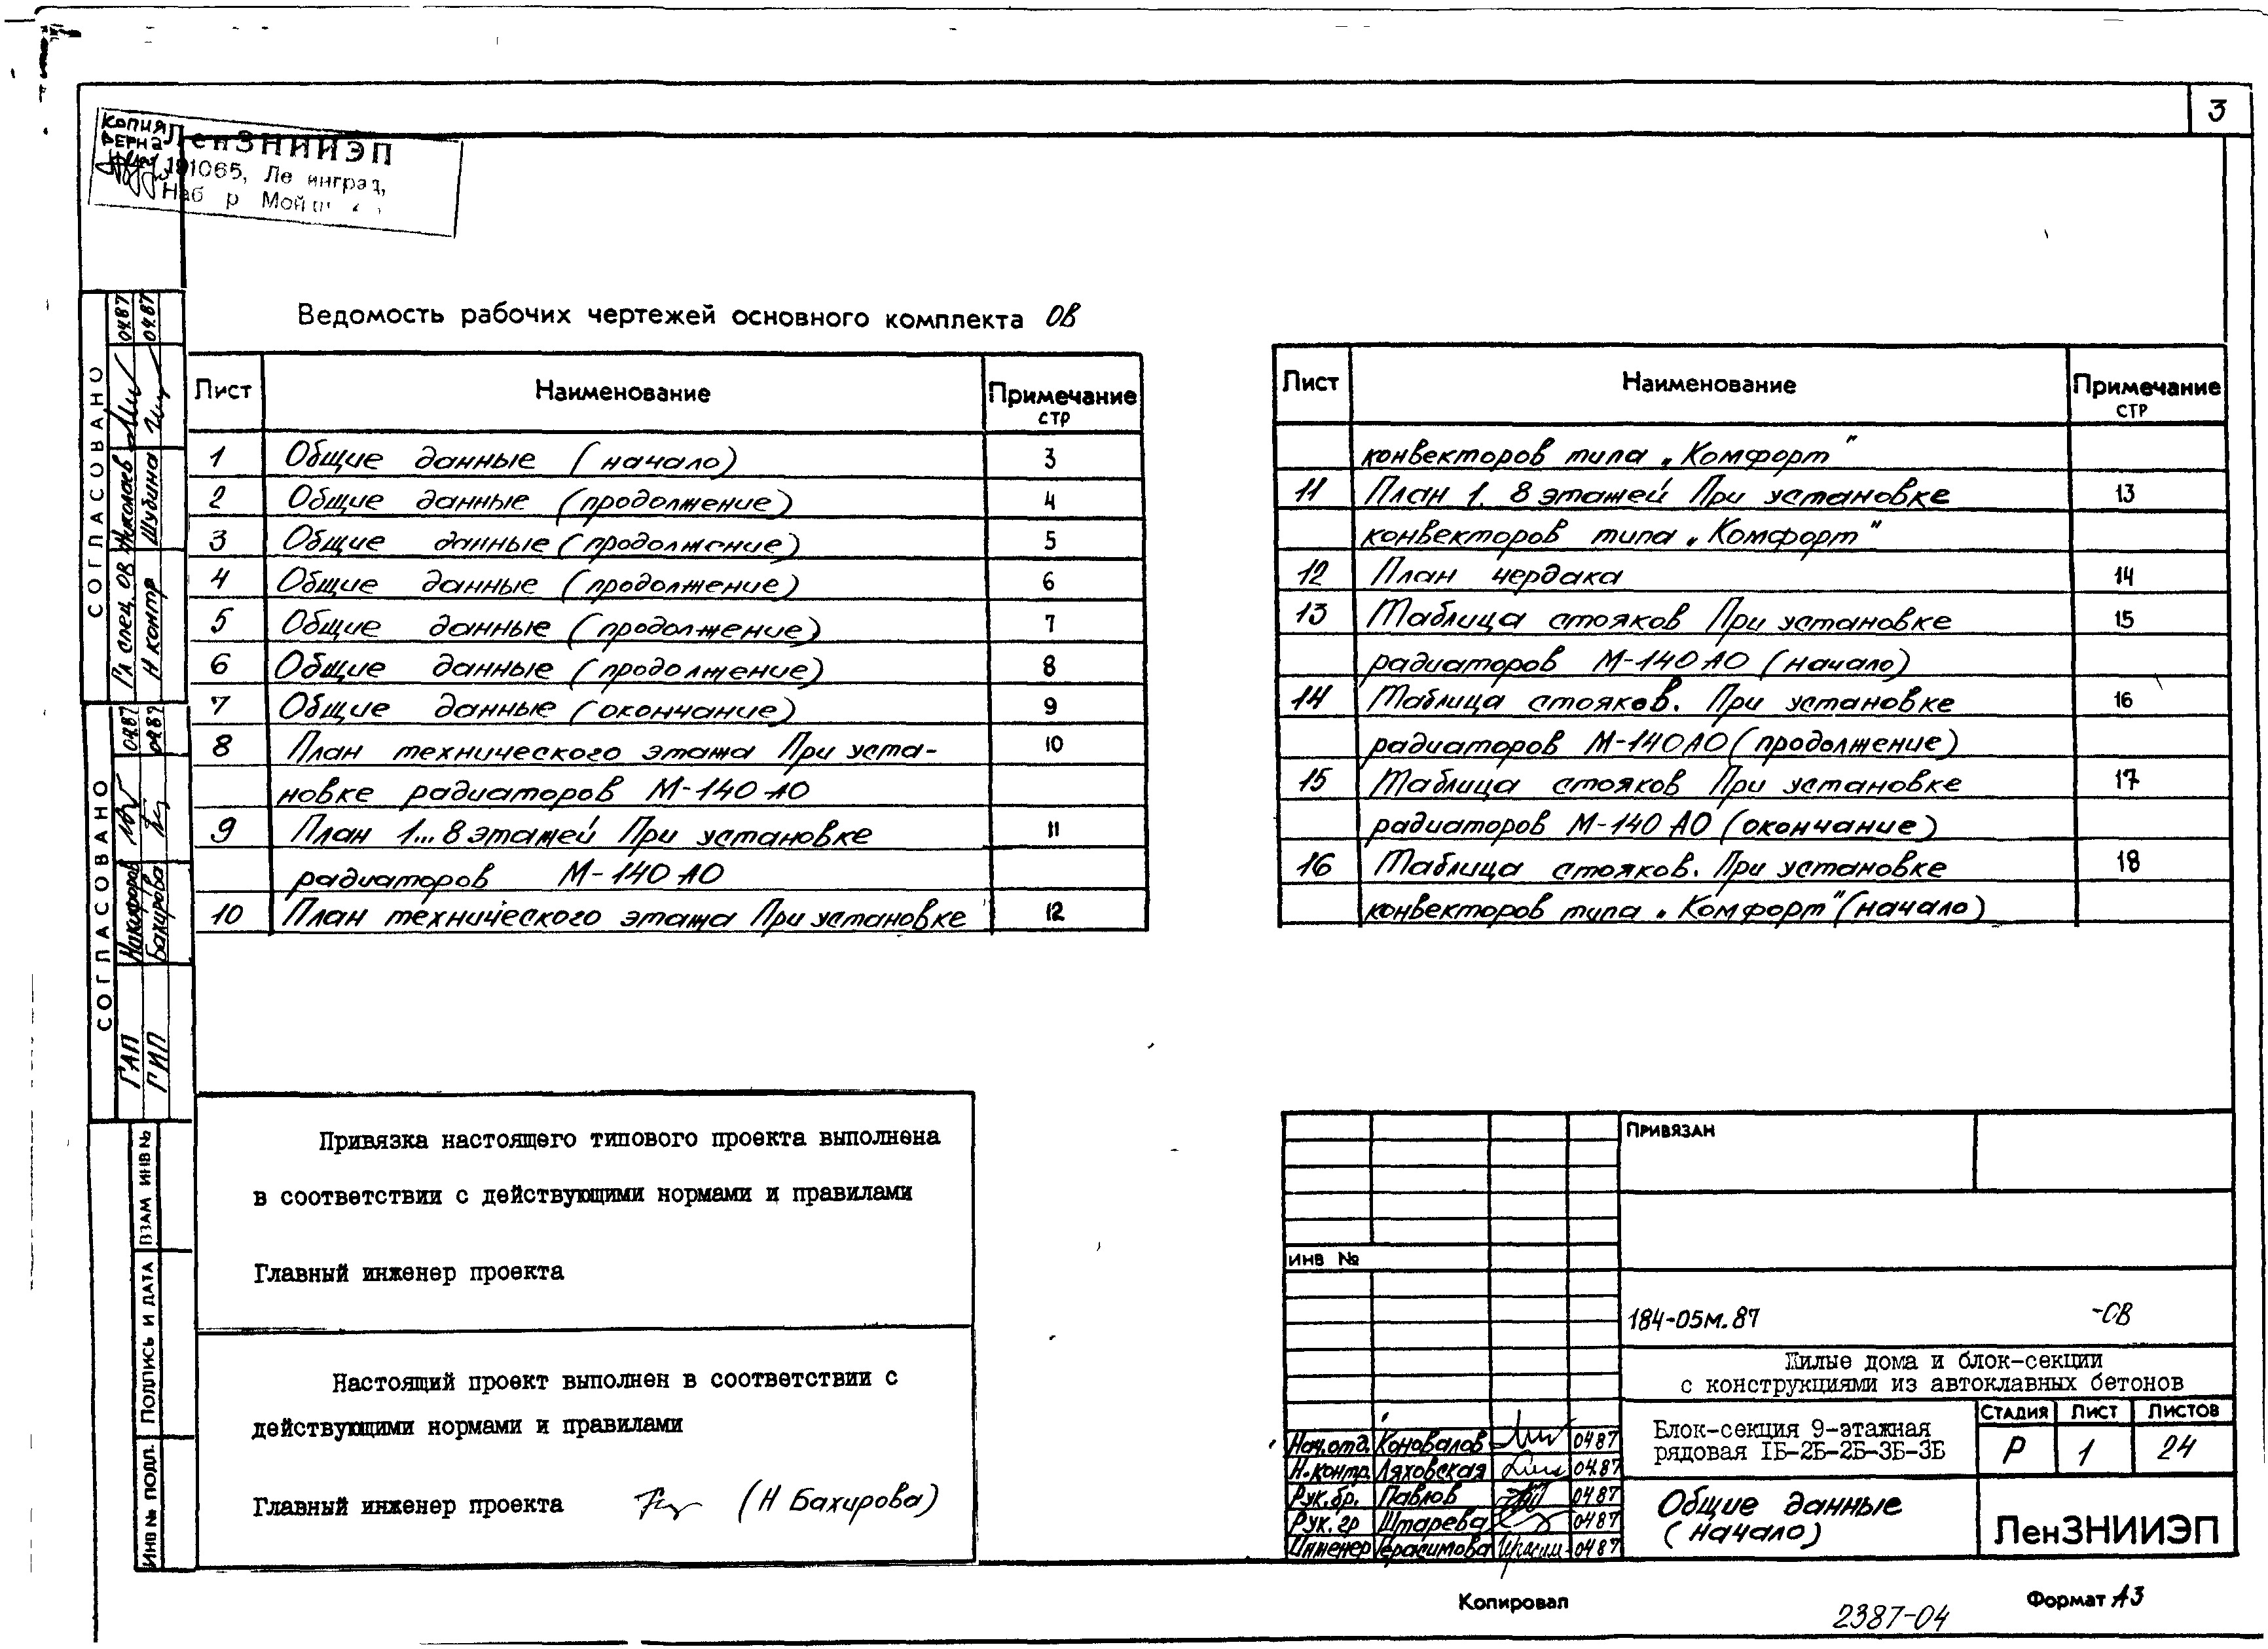 3
КОПИЯ
ВЕРНА
ЛенЗНИИЭП
191065, Ле инград,
Наб р Мой
Ведомость рабочих чертежей основного комплекта ОВ
Лист Наименование Примечание
стр
1 Общие данные (начало) 3
2 Общие данные (продолжение) 4
3 Общие данные (продолжение) 5
4 Общие данные (продолжение) 6
5 Общие данные (продолжение) 7
6 Общие данные (продолжение) 8
7 Общие данные (окончание) 9
8 План технического этажа При уста- 10
новке радиаторов М-140 АО
9 План 1...8 этажей При установке 11
радиаторов М-140 АО
10 План технического этажа При установке 12
Лист Наименование Примечание
стр
конвекторов типа „Комфорт"
11 План 1. 8 этажей При установке 13
конвекторов типа „Комфорт"
12 План чердака 14
13 Таблица стояков При установке 15
радиаторов М-140 АО (начало)
14 Таблица стояков. При установке 16
радиаторов М-140 АО (продолжение)
15 Таблица стояков При установке 17
радиаторов М-140 АО (окончание)
16 Таблица стояков. При установке 18
конвекторов типа „Комфорт" (начало)
СОГЛАСОВАНО
Гл спец ОВ Николаев 04.87
Н контр Шубина 04.87
СОГЛАСОВАНО
ГАП Никифоров 04.87
ГИП Бахирова 04.87
ВЗАМ ИНВ №
ПОДПИСЬ И ДАТА
ИНВ № ПОДЛ.
Привязка настоящего типового проекта выполнена
в соответствии с действующими нормами и правилами
Главный инженер проекта
Настоящий проект выполнен в соответствии с
действующими нормами и правилами
Главный инженер проекта (Н Бахирова)
ПРИВЯЗАН
ИНВ №
184-05м.87 -ОВ
Жилые дома и блок-секции
с конструкциями из автоклавных бетонов
Блок-секция 9-этажная
рядовая 1Б-2Б-2Б-3Б-3Б
СТАДИЯ ЛИСТ ЛИСТОВ
Р 1 24
Нач.отд. Коновалов 04.87
Н.контр. Ляховская 04.87
Рук.бр. Павлов 04.87
Рук. гр Штарева 04.87
Инженер Герасимова 04.87
Общие данные
(начало)
ЛенЗНИИЭП
Копировал
2387-04
Формат А3